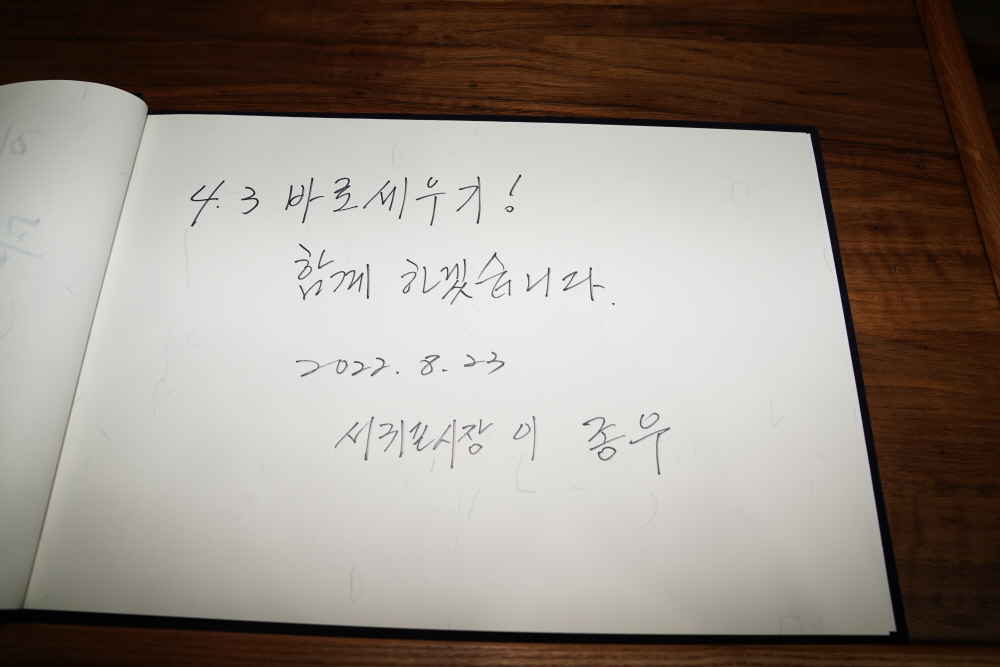 4.3 바로세우기!
함께 하겠습니다.
2022. 8. 23
서귀포시장 이 종우